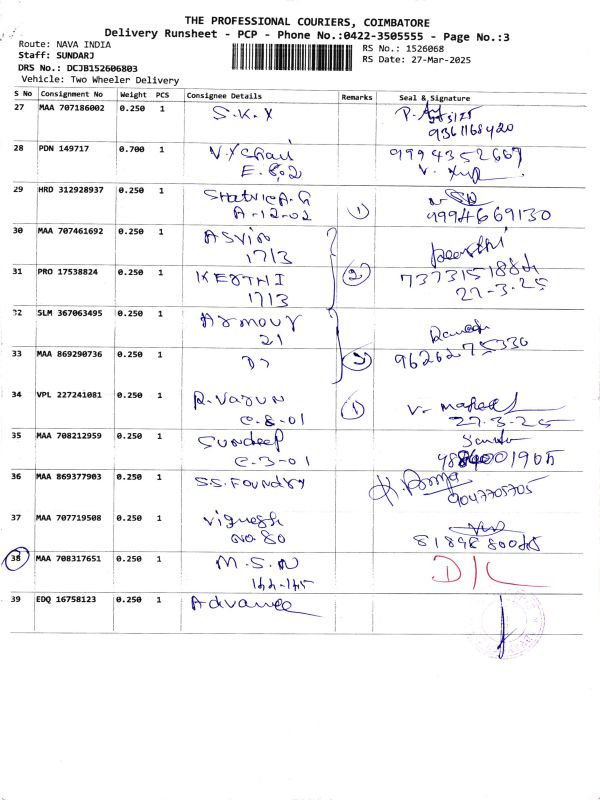 THE PROFESSIONAL COURIERS, COIMBATORE
Delivery Runsheet - PCP - Phone No.:0422-3505555 - Page No.:3
Route: NAVA INDIA
RS No.: 1526068
Staff: SUNDARJ
RS Date: 27-Mar-2025
DRS No.: DCJB152606803
Vehicle: Two Wheeler Delivery
S No Consignment No Weight PCS Consignee Details Remarks Seal & Signature
27 MAA 707186002 0.250 1 S.K.Y
9361168420
28 PDN 149717 0.700 1 V.Y Chari 9994352667
E.802
29 HRD 312928937 0.250 1
A-12-02 1 9994669130
30 MAA 707461692 0.250 1 ASVIN
1713
31 PRO 17538824 0.250 1 KERTHI 2
1713 27-3-25
32 SLM 367063495 0.250 1 Armour
21
33 MAA 869290736 0.250 1 9626275330
34 VPL 227241081 0.250 1 R.Varun 1
C-8-01 27-3-25
35 MAA 708212959 0.250 1 Sundeep
C-3-01
36 MAA 869377903 0.250 1 SS.Foundry
9047705705
37 MAA 707719508 0.250 1 Vignesh
No.80
38 MAA 708317651 0.250 1 M.S.N D/L
144-145
39 EDQ 16758123 0.250 1 Advance